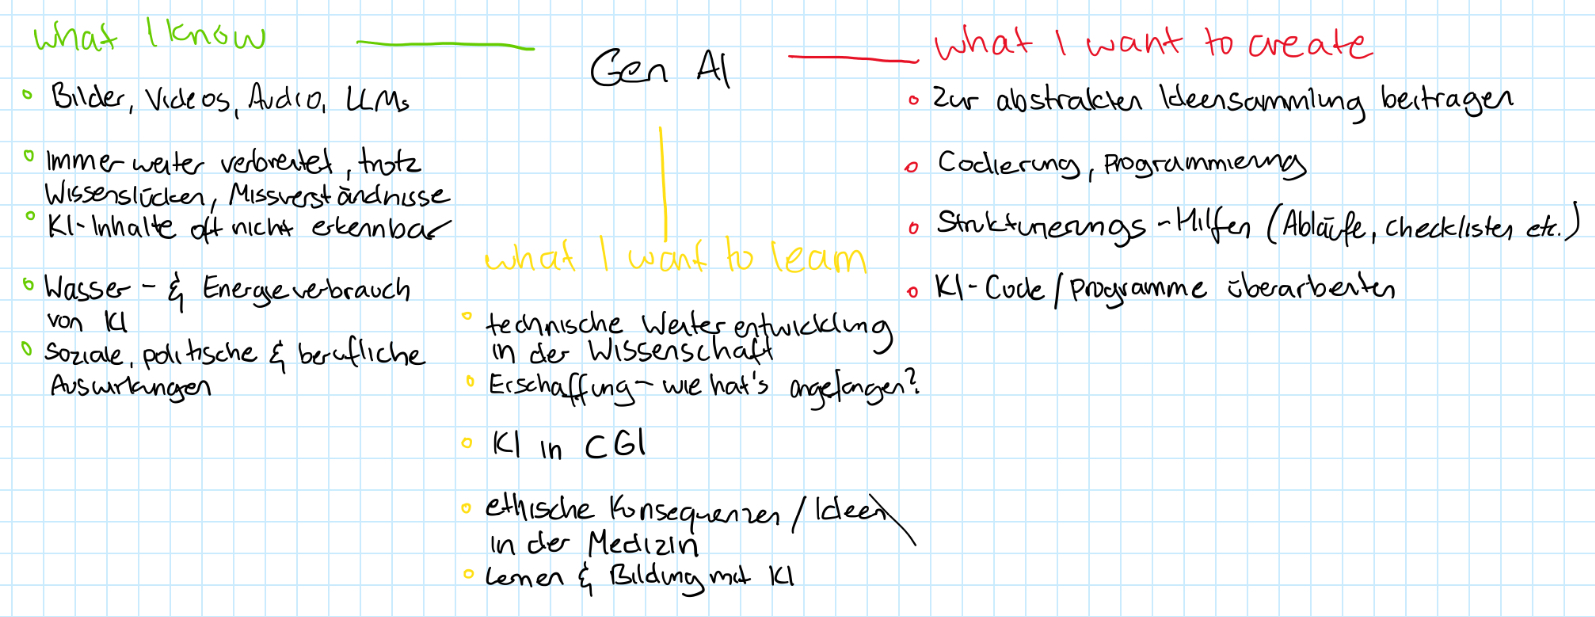 what I know
Gen AI
what I want to create
Bilder, Videos, Audio, LLMs
Immer weiter verbreitet, trotz
Wissenslücken, Missverständnisse
KI-Inhalte oft nicht erkennbar
Wasser- & Energieverbrauch
von KI
Soziale, politische & berufliche
Auswirkungen
what I want to learn
technische Weiterentwicklung
in der Wissenschaft
Erschaffung - wie hat's angefangen?
KI in CGI
ethische Konsequenzen / Ideen
in der Medizin
Lernen & Bildung mit KI
Zur abstrakten Ideensammlung beitragen
Codierung, Programmierung
Strukturierungs-Hilfen (Abläufe, Checklisten etc.)
KI-Code/Programme überarbeiten